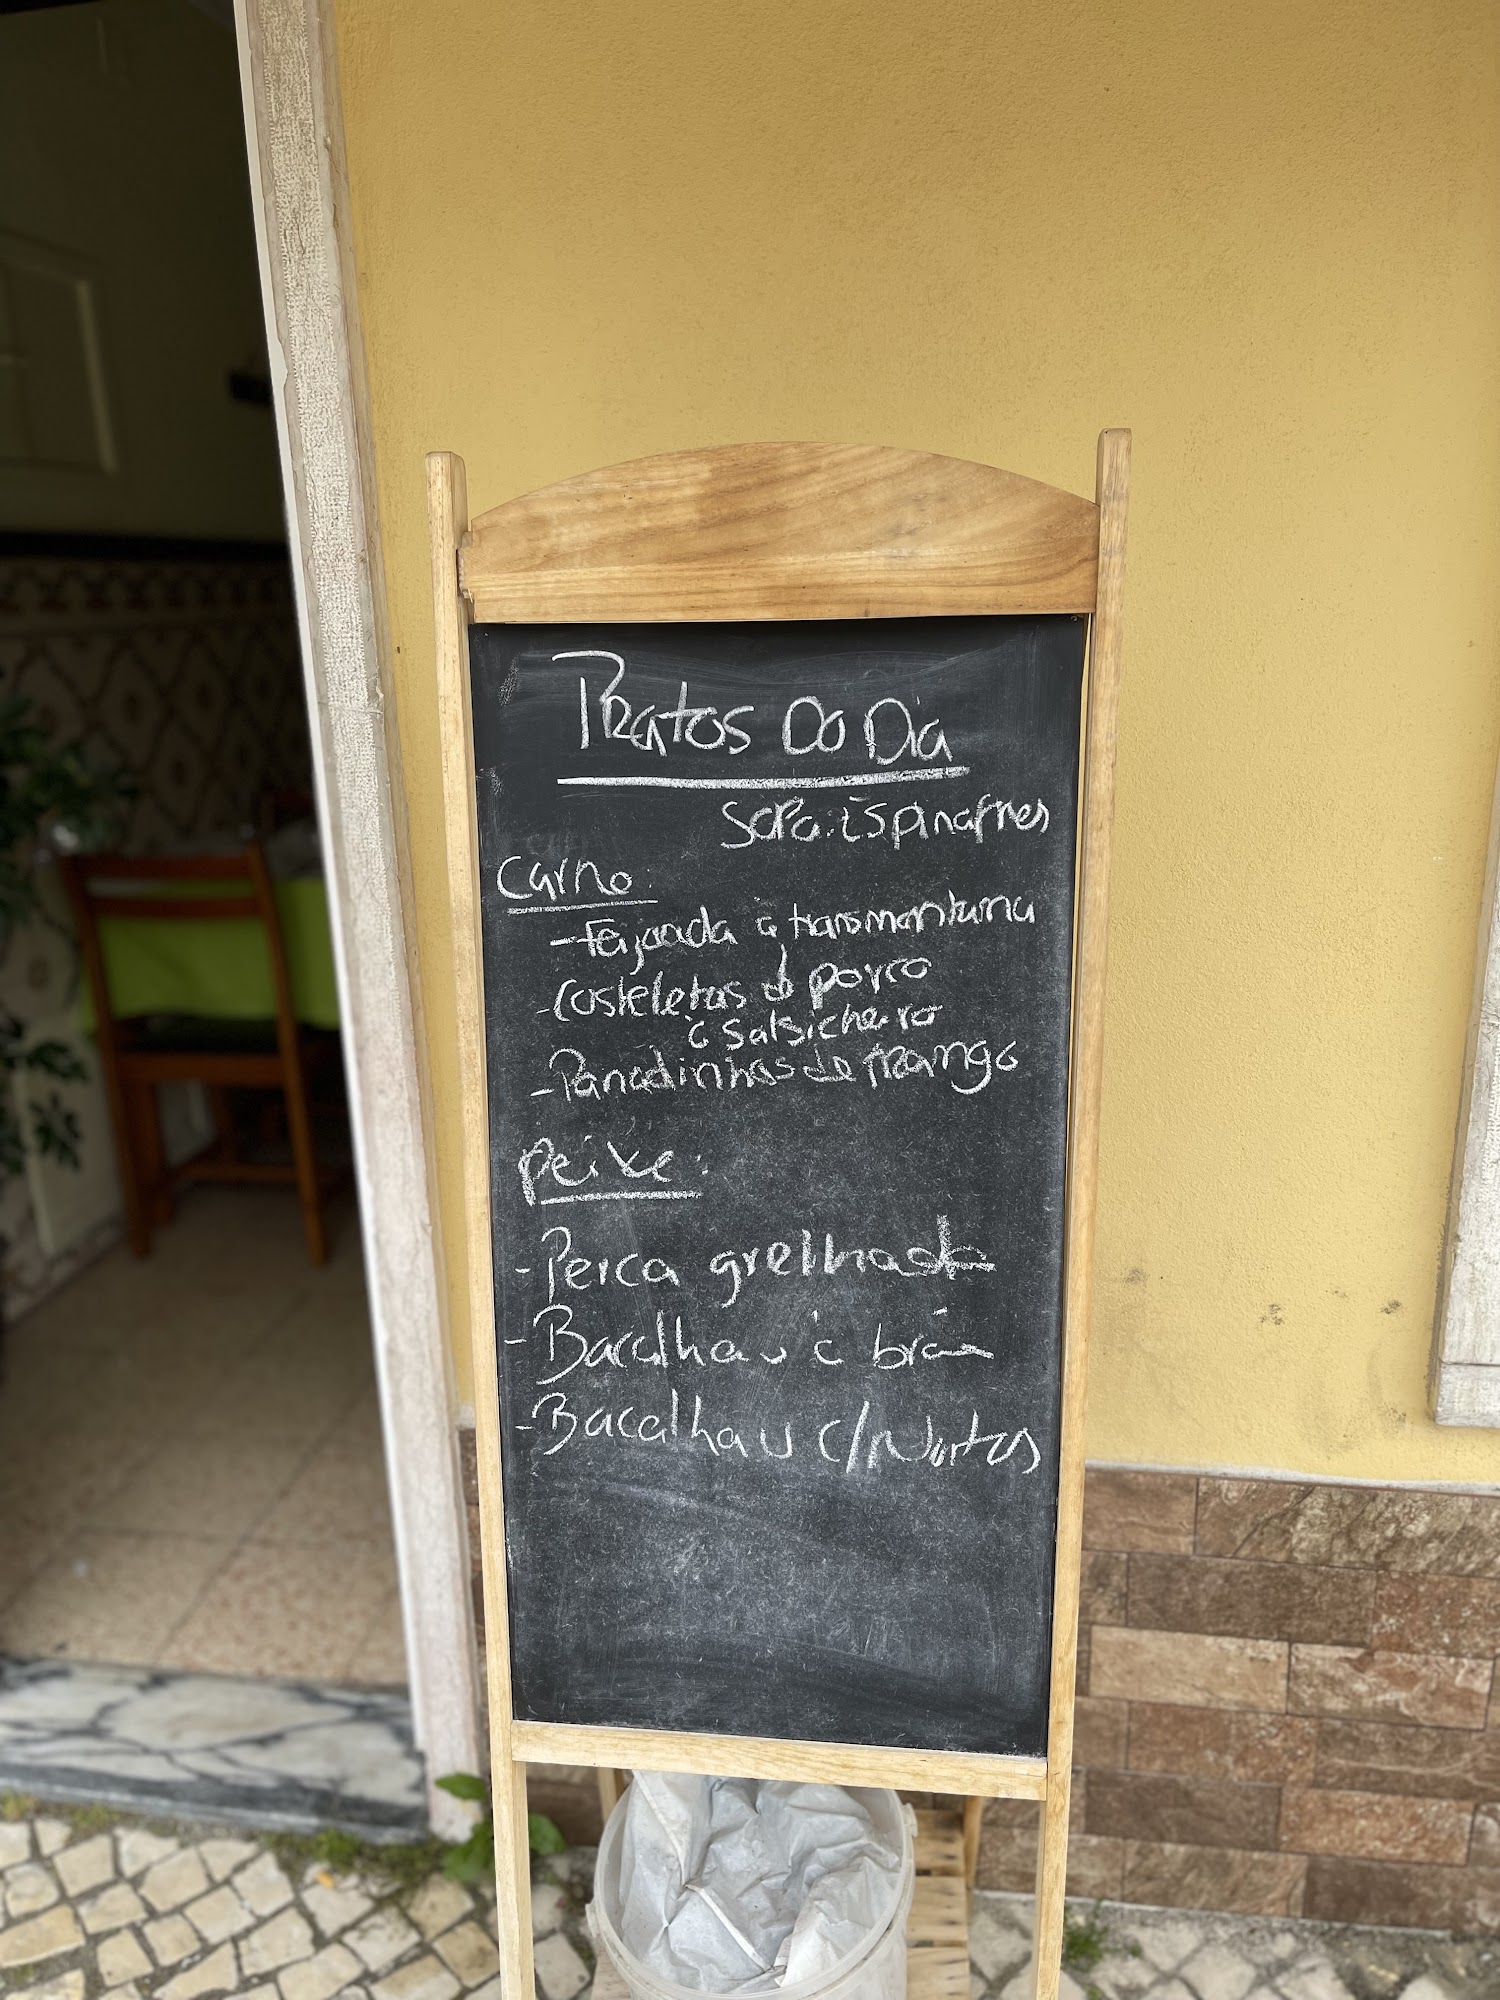 Pratos Do Dia
Sopa: Espinafres
Carne:
- Feijoada à transmontana
- Costeletas de porco
à Salsicheiro
- Panadinhos de frango
Peixe:
- Perca grelhada
- Bacalhau à brás
- Bacalhau c/ Natas